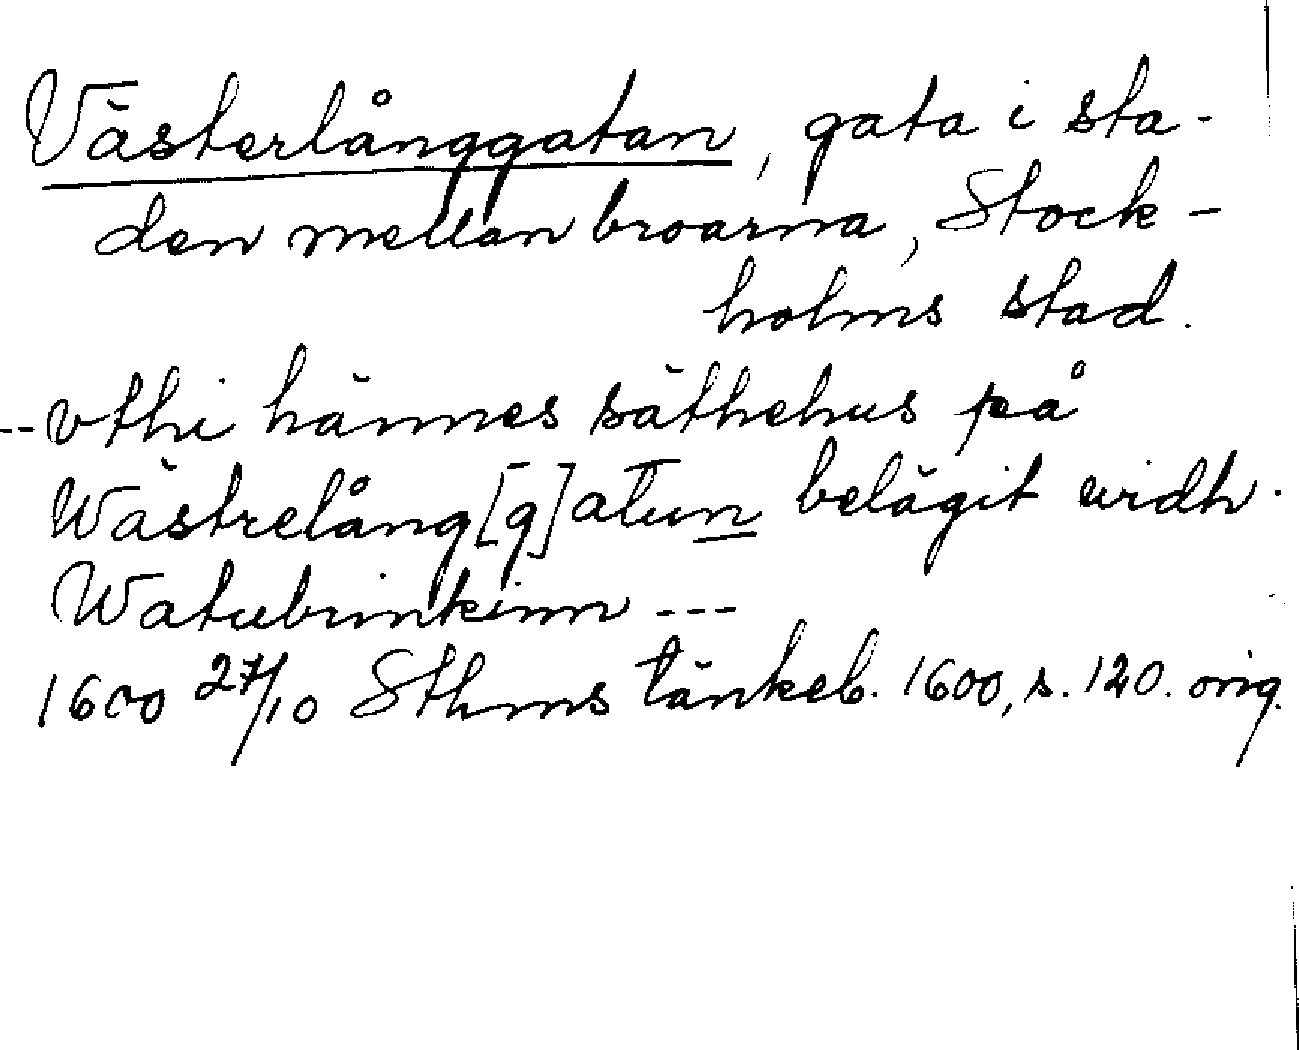 Västerlånggatan, gata i sta-
den mellan broarna, Stock-
holms stad.
-- vthi hännes säthehus på
Wästrelång[g]atun belägit widh
Watubrinkinn ---
1600 27/10 Sthms tänkeb. 1600, s. 120. orig.